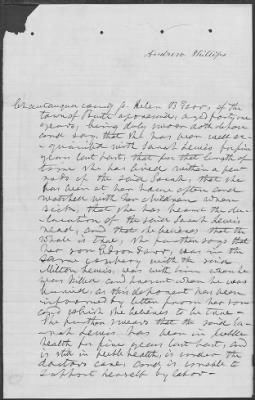 Andrew Phillips
Chautauqua county ss. Helen B Geer, of the
town of aforesaid, aged forty one
years, being duly sworn doth depose
and say, that she has been well ac-
quainted with Sarah Lewis for five
years last past, that for that length of
time she has lived within a few
rods of the said Sarah, that she
has been at her house often and
watched with her children when
sick, that she has
of the said Sarah Lewis
read, and that she believes that the
whole is true, she further says that
her son was in the
same company with the said
Milton Lewis, was with him when he
was killed and present when he was
buried, as this deponent has been
informed by letter from her son
which she believes to be true -
She further swears that the said Sa-
rah Lewis has been in feeble
health for five years last past, and
is still in feeble health, is under the
doctors care, and is unable to
support herself by labor -